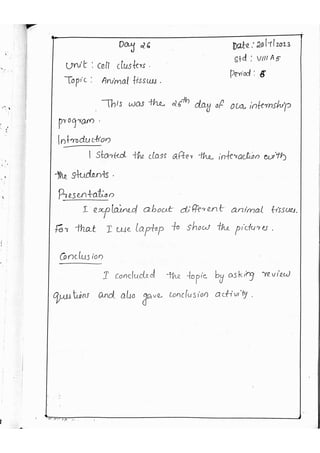 Day 26
Date : 20/7/2023
Unit : Cell clusters .
Std : VIII A5
Topic : Animal tissues .
Period : 5
This was the 26th day of our internship
program .
Introduction
I Started the class after the interaction with
the students .
Presentation
I explained about different animal tissues.
For that I use laptop to show the pictures .
Conclusion
I concluded the topic by asking review
questions and also gave conclusion activity .